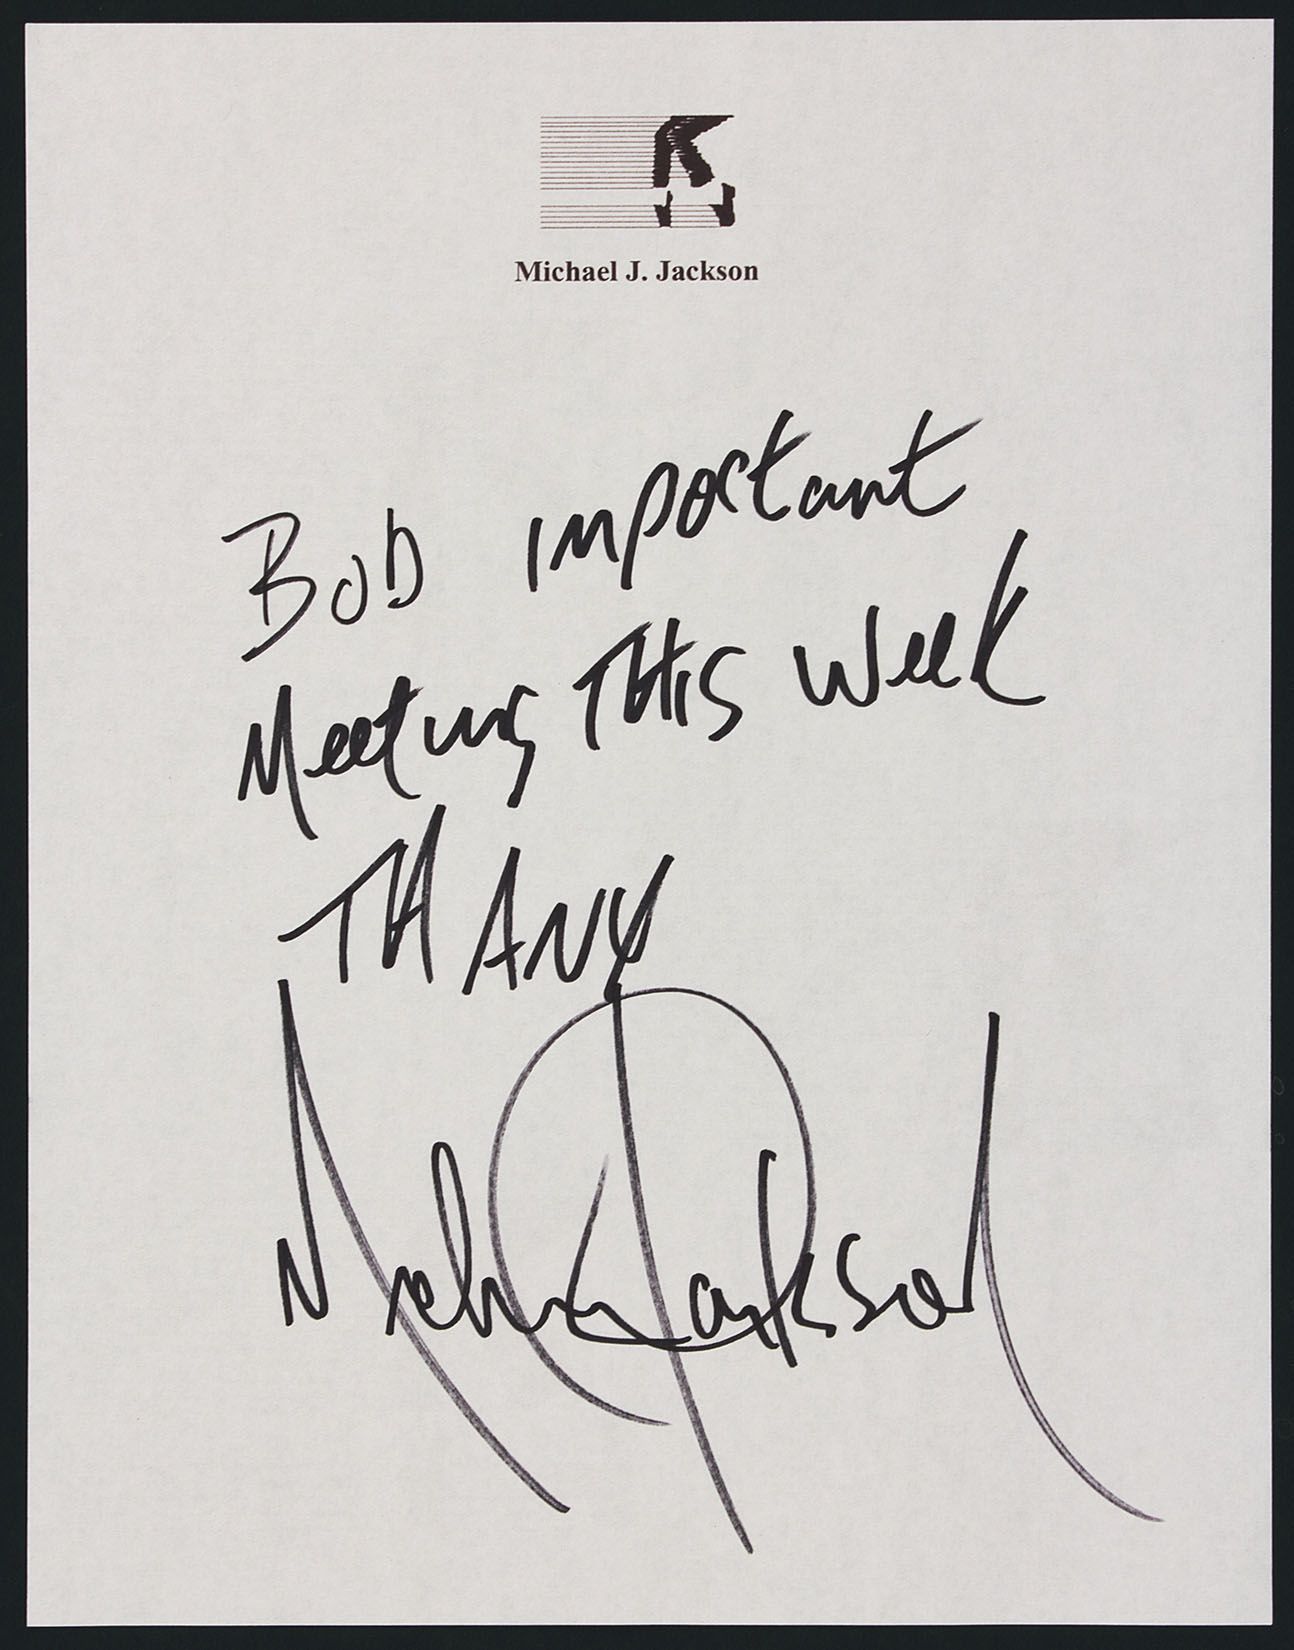 Michael J. Jackson
BOD important
Meeting THiS week
THANX
Michael Jackson